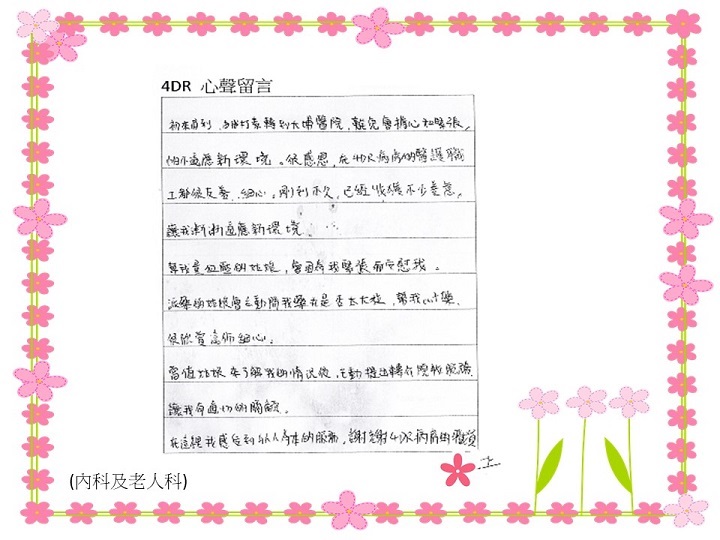 4DR 心聲留言
初來自到，由威爾斯轉到大埔醫院，難免會擔心和緊張，
怕不適應新環境。很感恩，在4DR病房的醫護職
工都很友善、細心。剛到不久，已經收穫不少善意，
讓我漸漸適應新環境
幫我量血壓的姑娘，會因為我緊張而安慰我。
派藥的姑娘會主動問我藥丸是否太大粒，幫我cut藥，
很欣賞 細心。
當值姑娘在了解我的情況後，主動提出轉介 服務
讓我有適切的 。
在這裡我感受到以人為本的服務，謝謝4DR病房的職員
(內科及老人科)